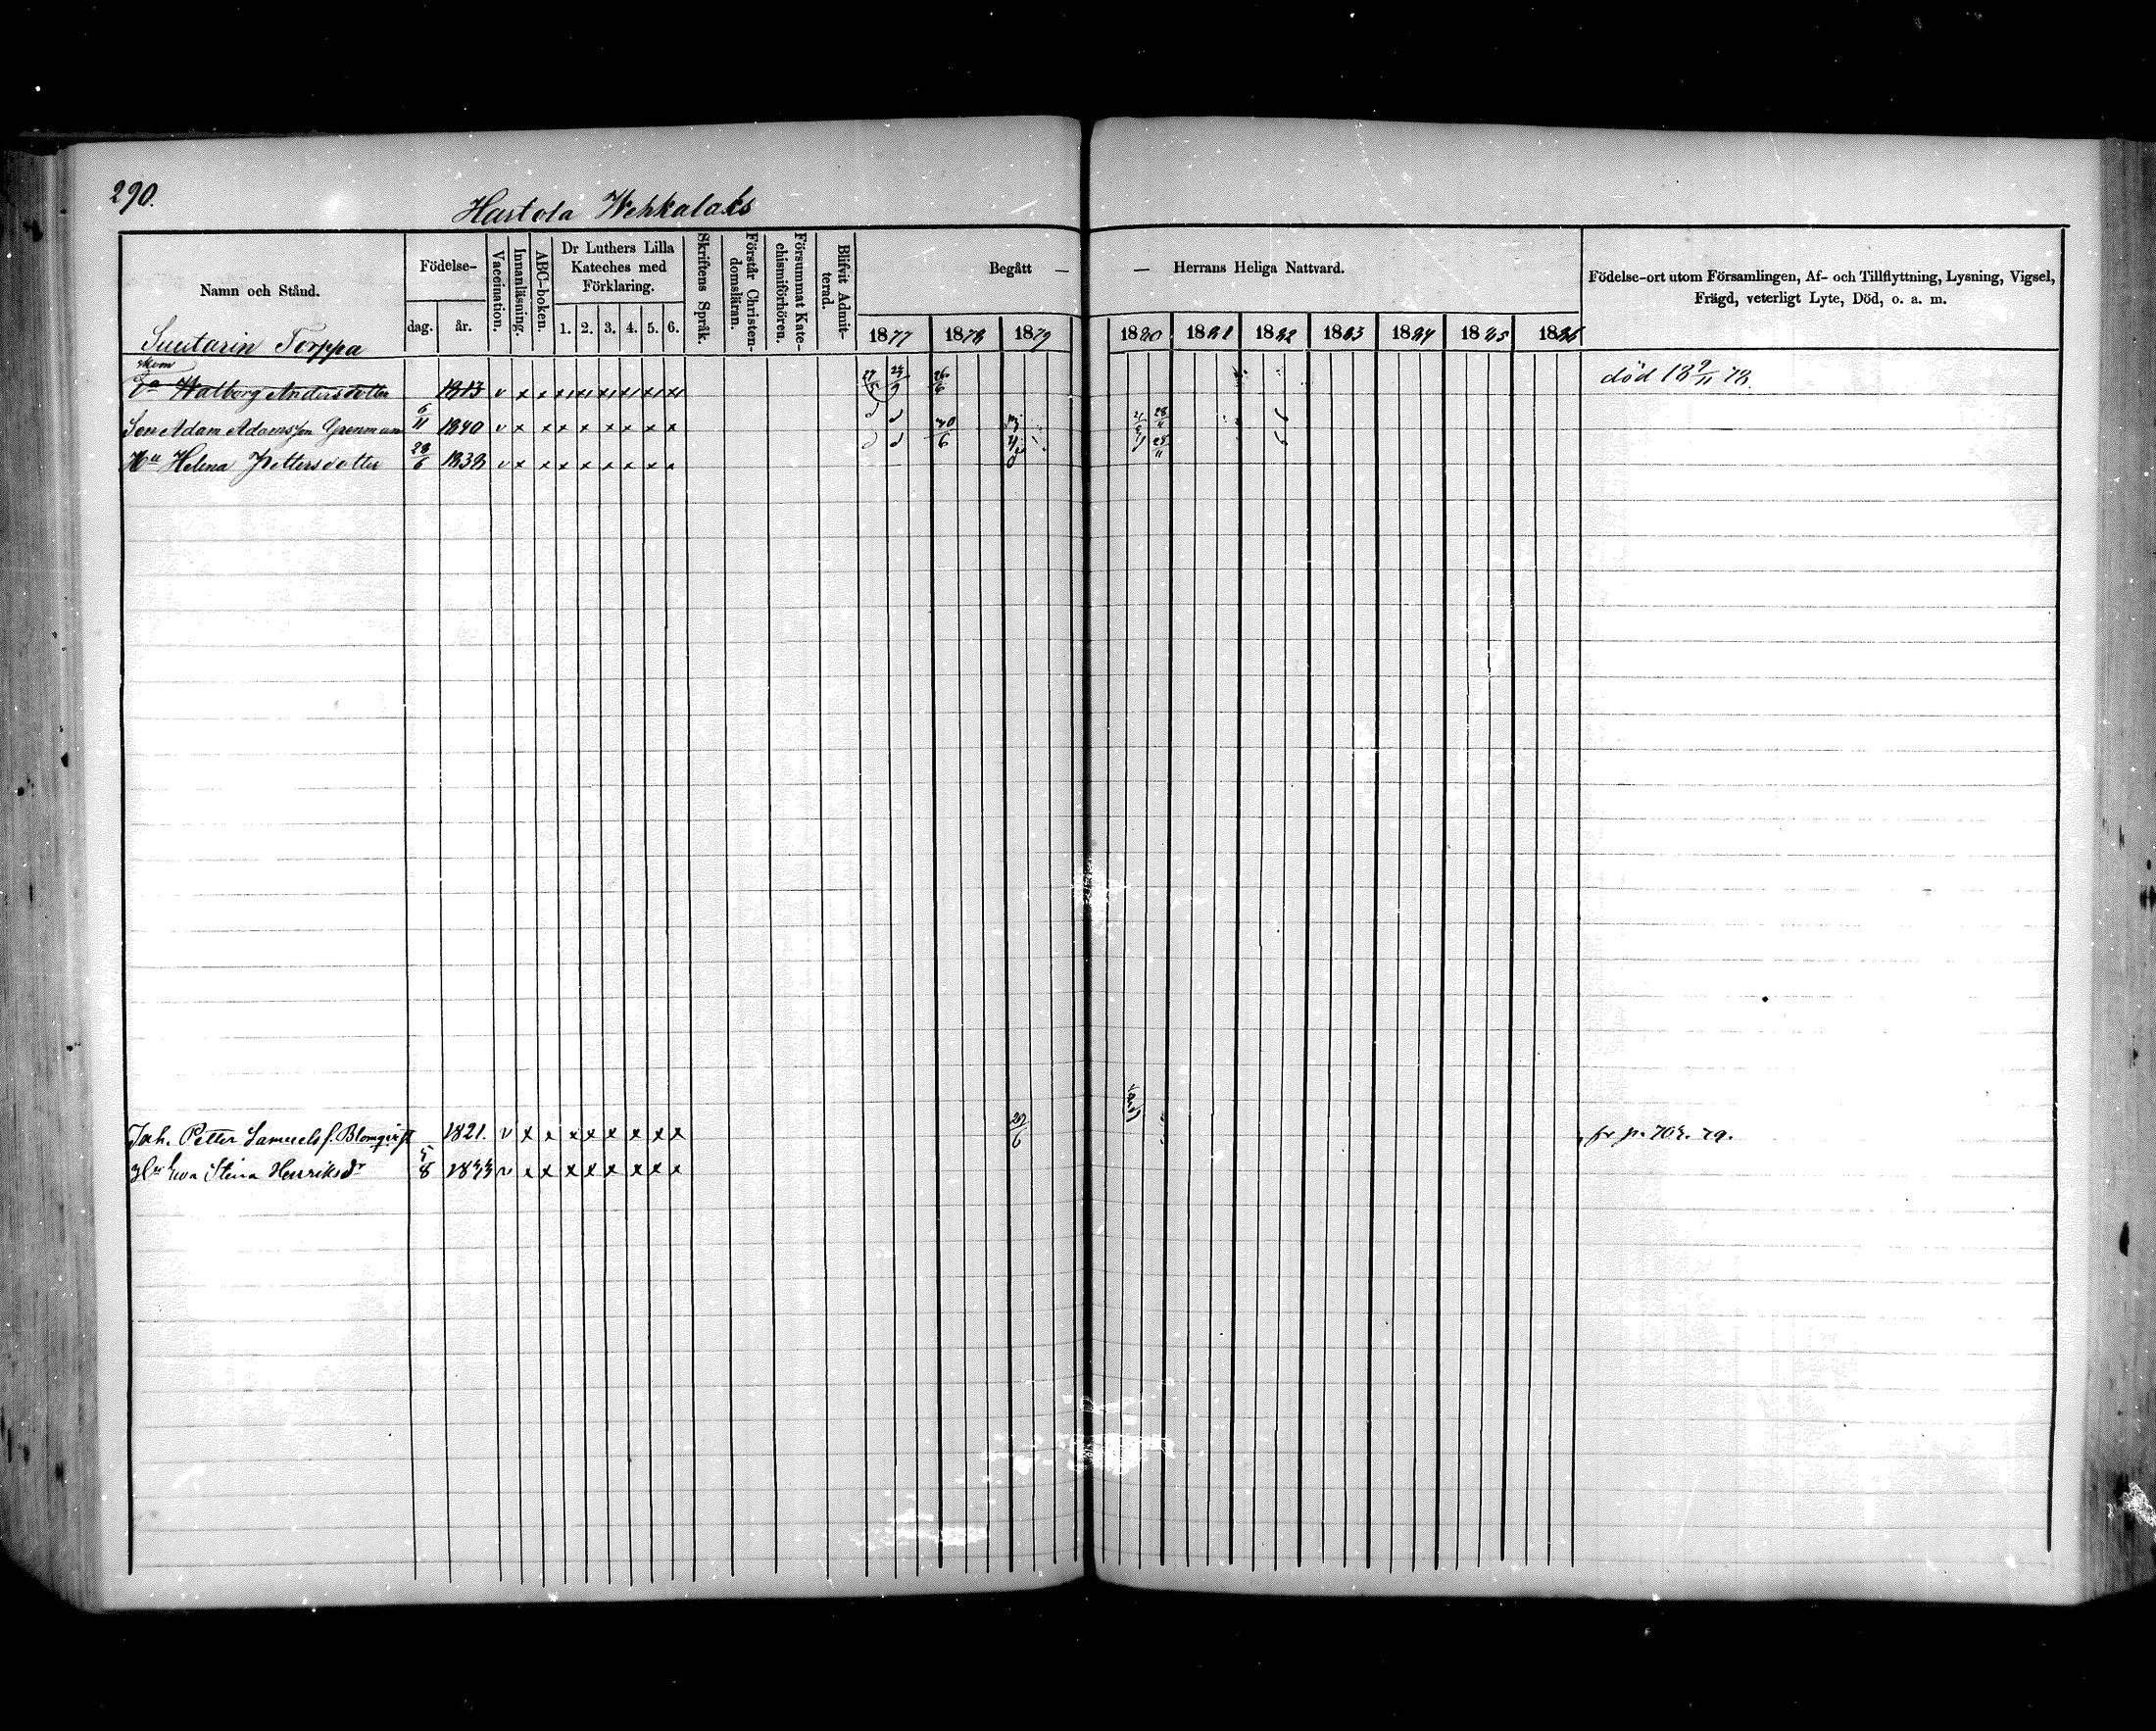 290.
Hartola Wehkalaks
Namn och Stånd.
Födelse-
dag. år.
Vaccination.
Innanläsning.
ABC-boken.
Dr Luthers Lilla
Kateches med
Förklaring.
1. 2. 3. 4. 5. 6.
Skriftens Språk.
Förstår Christen-
domsläran.
Försummat Kate-
chismiförhören.
Blifvit Admit-
terad.
Begått — — Herrans Heliga Nattvard.
1877 1878 1879 1880 1881 1882 1883 1884 1885 1886
Födelse-ort utom Församlingen, Af- och Tillflyttning, Lysning, Vigsel,
Frägd, veterligt Lyte, Död, o. a. m.
Torppa
Walborg Andersdotter 1813 v x x x x x x x x 27/5 26/6 död 18 9/11 78.
Son Adam Adamsson Grenman 6/11 1840 v x x x x x x x x 30/6 28/11
Hu Helena Pettersdotter 28/6 1838 v x x x x x x x x 28/11
Joh. Petter Samuelsf. Blomqvist 1821. v x x x x x x x x 29/6
Hu Eva Stina Henriksdr 5/8 1833 v x x x x x x x x